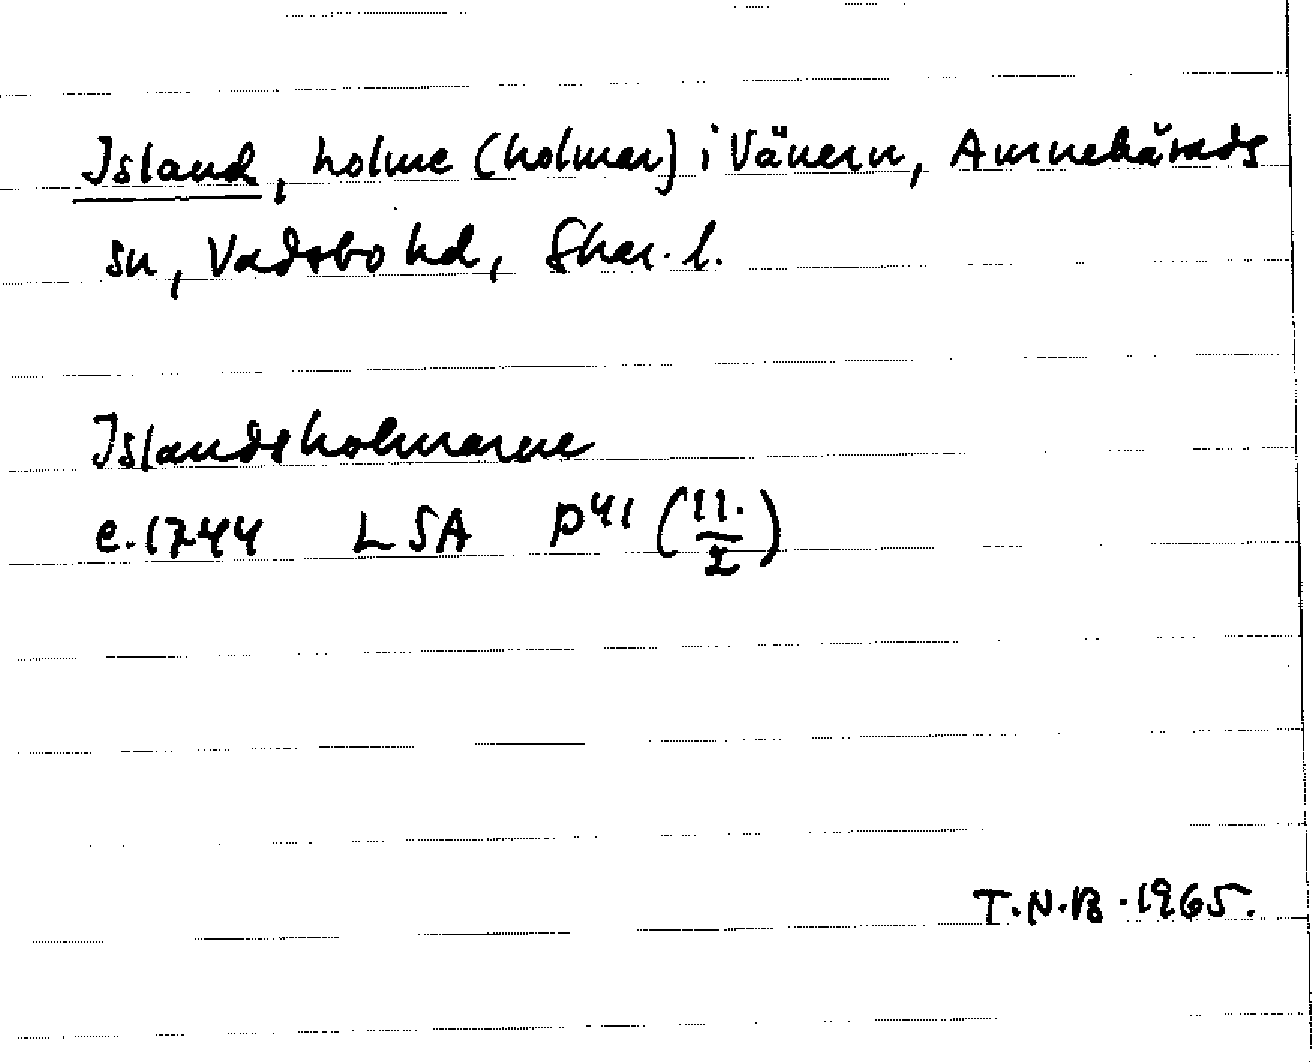 Island, holme (holmar) i Vänern, Amnehärads
sn, Vadsbo hd, Skar. l.
Islandsholmarne
c. 1744 LSA P41 (11./I)
T.N.B. 1965.